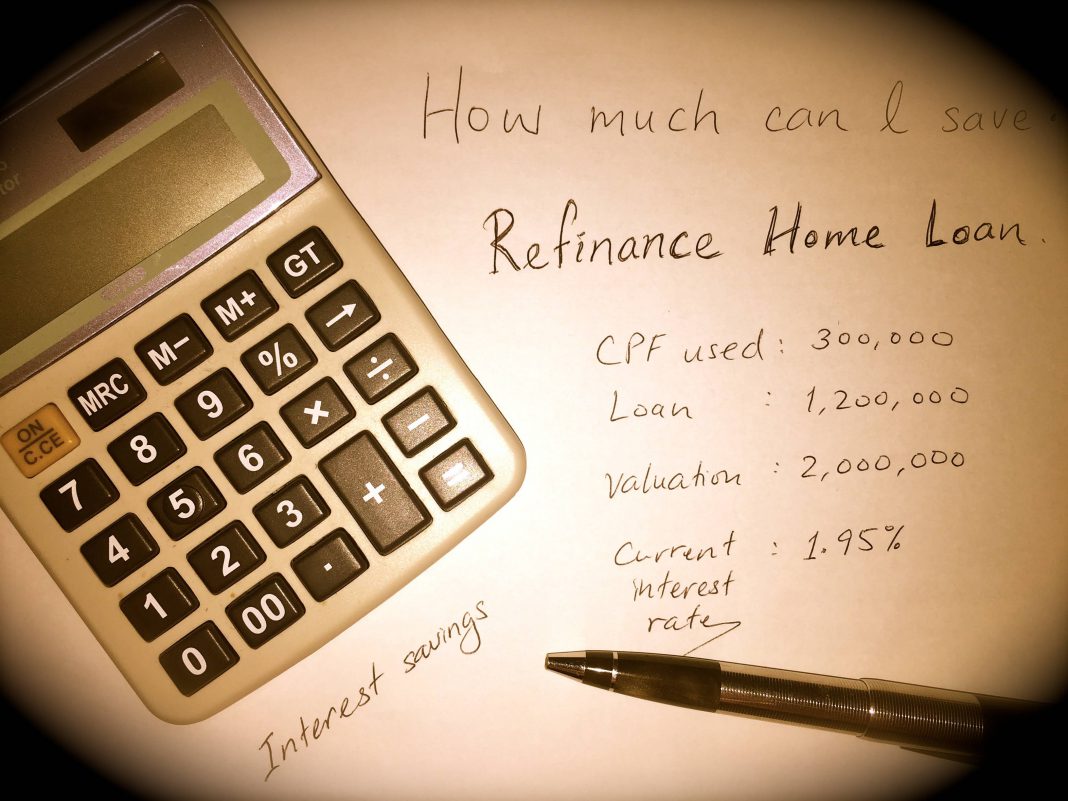 How much can I save
Refinance Home Loan.
CPF used : 300,000
Loan : 1,200,000
Valuation : 2,000,000
Current : 1.95%
interest
rate
Interest savings
tor
GT
M+
→
M−
%
÷
MRC
9
×
−
ON
C.CE
8
6
+
=
7
5
3
.
4
2
00
1
0